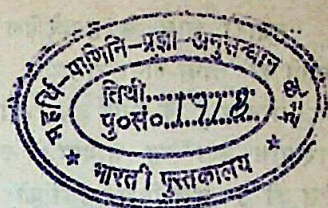 महर्षि-पाणिनि-प्रज्ञा-अनुसन्धान
तिथी..............
पु०सं०...1918
* भारती पुस्तकालय *